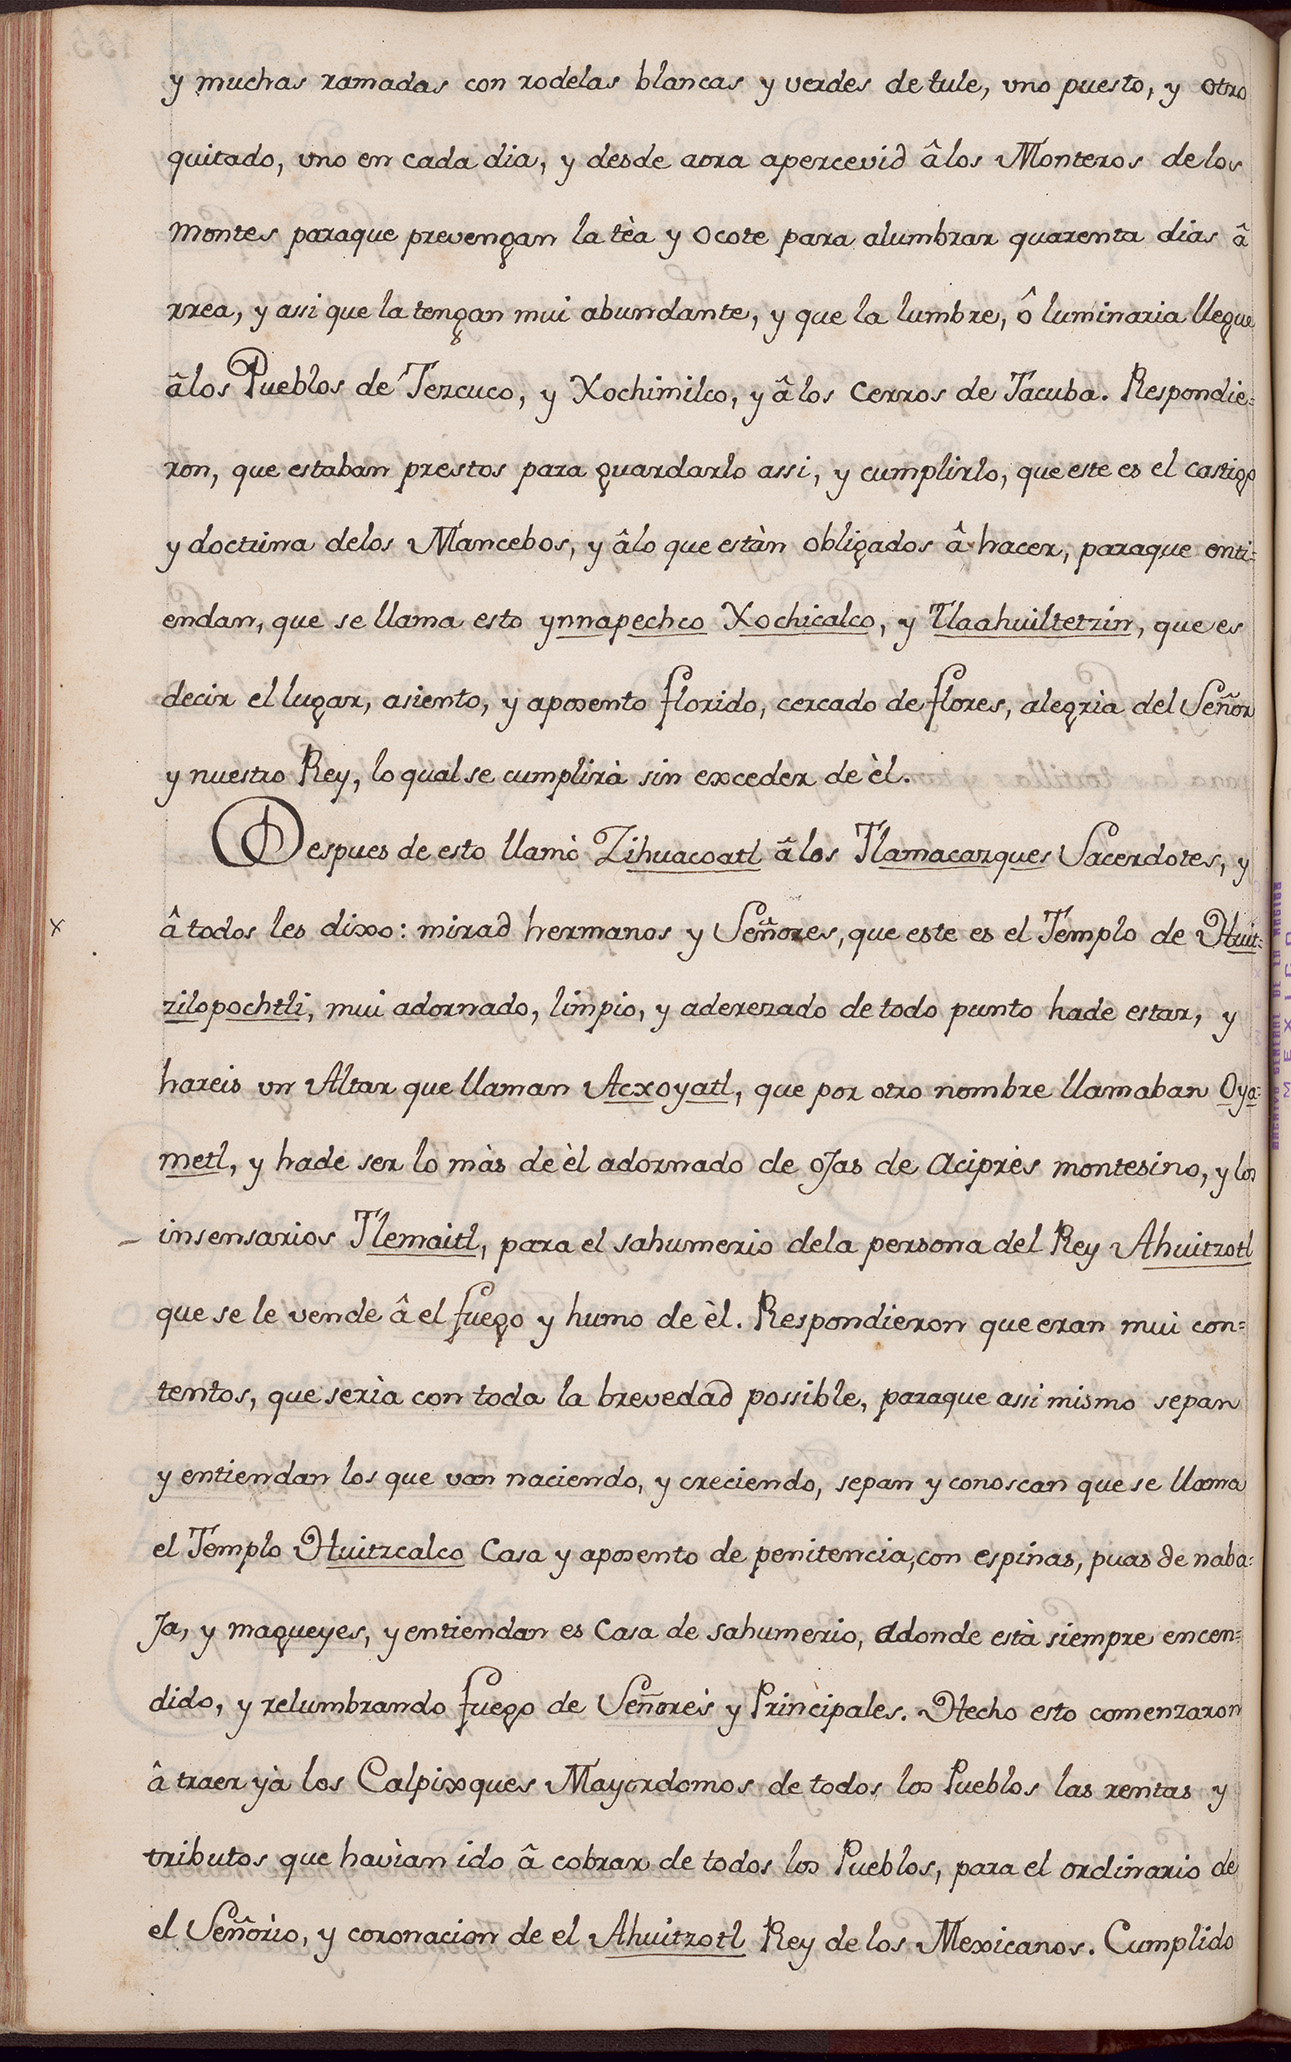 y muchas ramadas con rodelas blancas y verdes de tule, vno puesto, y otro
quitado, vno en cada dia, y desde aora apercevid âlos Monteros delos
montes paraque prevengan la tèa y ocote para alumbrar quarenta dias â
rrea, y assi que la tengan mui abundante, y que la lumbre, ô luminaria llegue
âlos Pueblos de Tezcuco, y Xochimilco, y âlos cerros de Tacuba. Respondie=
ron, que estaban prestos para guardarlo assi, y cumplirlo, que este es el castigo
y doctrina delos Mancebos, y âlo que estàn obligados â hacer, paraque enti=
endan, que se llama esto ynnapechco Xochicalco, y Tlaahuiltetzin, que es
decir el lugar, asiento, y aposento florido, cercado de flores, alegria del Señor
y nuestro Rey, lo qual se cumplirà sin exceder de èl.
Despues de esto llamò Zihuacoatl âlos Tlamacazques Sacerdotes, y
â todos les dixo: mirad hermanos y Señores, que este es el Templo de Huit=
zilopochtli, mui adornado, limpio, y aderezado de todo punto hade estar, y
hareis vn Altar que llaman Acxoyatl, que por otro nombre llamaban Oya=
metl, y hade ser lo màs de èl adornado de ojas de Aciprès montesino, y los
insensarios Tlemaitl, para el sahumerio dela persona del Rey Ahuitzotl
que se le vende â el fuego y humo de èl. Respondieron que eran mui con=
tentos, que seria con toda la brevedad possible, paraque assi mismo sepan
y entiendan los que van naciendo, y creciendo, sepan y conoscan que se llama
el Templo Huitzcalco Casa y aposento de penitencia, con espinas, puas de naba=
ja, y magueyes, y entiendan es Casa de sahumerio, adonde està siempre encen=
dido, y relumbrando fuego de Señores y Principales. Hecho esto comenzaron
â traer yà los Calpixques Mayordomos de todos los Pueblos las rentas y
tributos que havian ido â cobrar de todos los Pueblos, para el ordinario de
el Señorio, y coronacion de el Ahuitzotl Rey de los Mexicanos. Cumplido